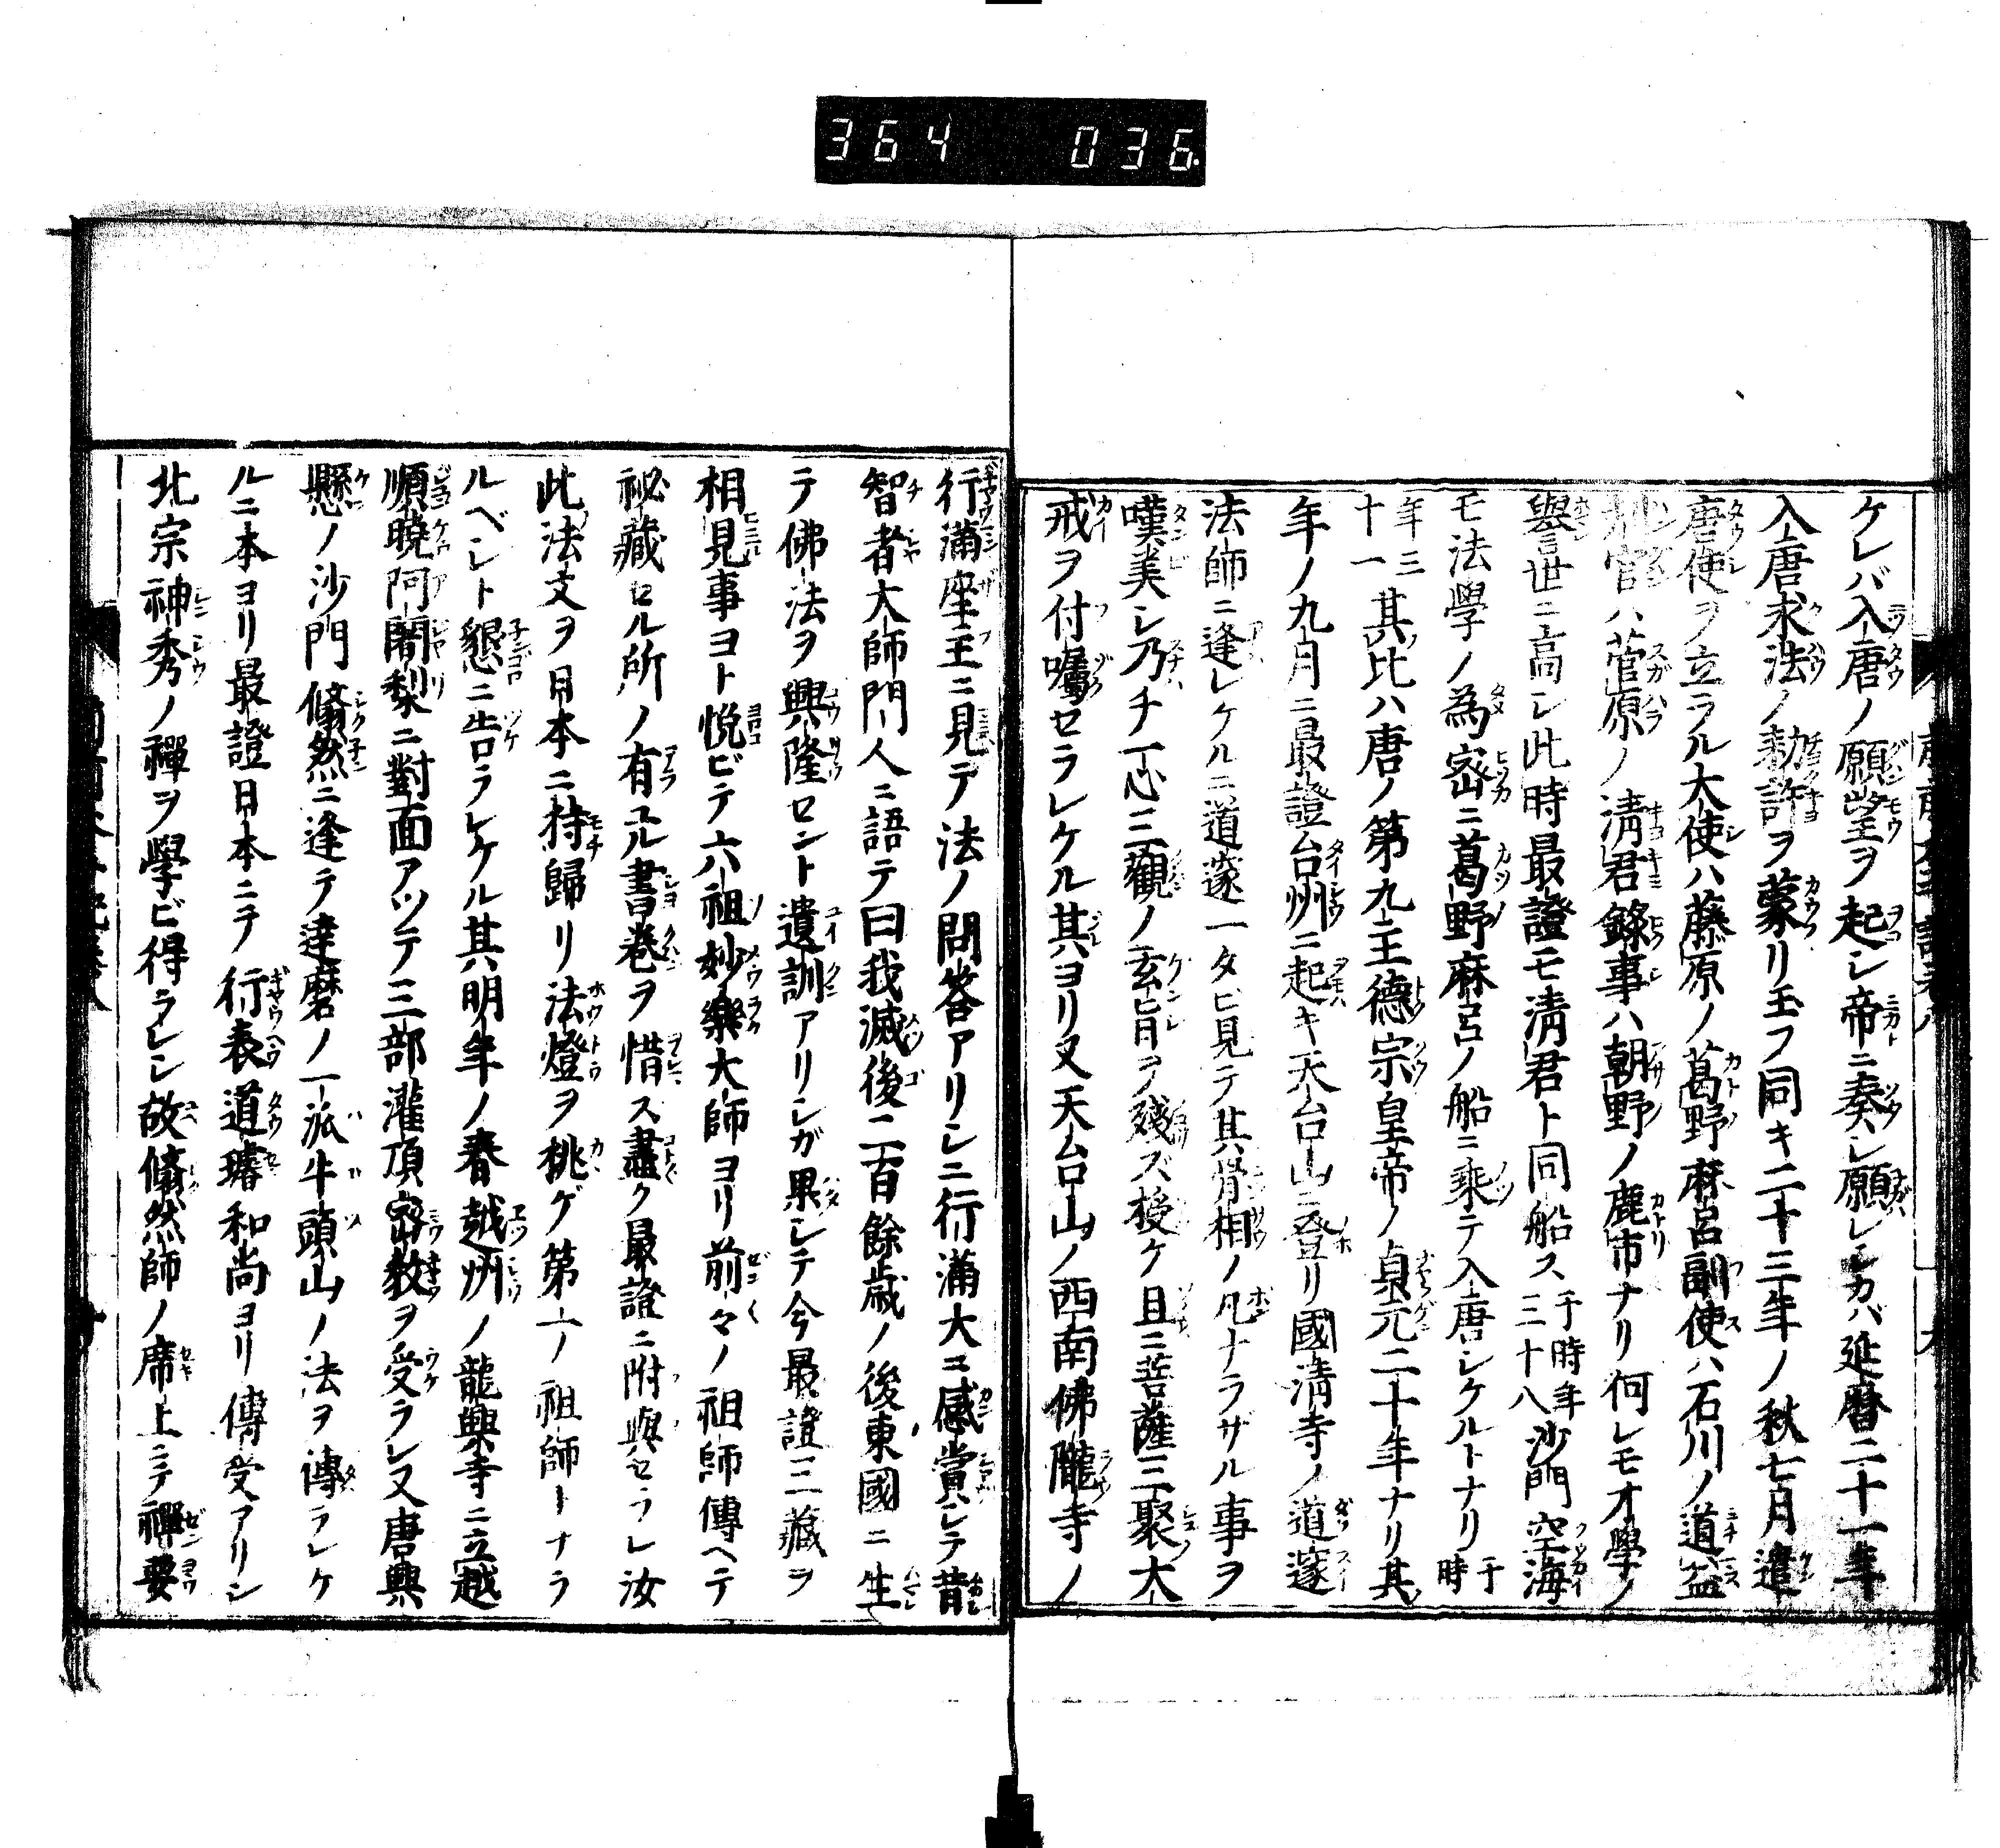 364 036
ケレバ入唐ノ願望ヲ起シ帝ニ奏シ願レシカバ延暦二十一年
入唐求法ノ勅許ヲ蒙リ玉フ同キ二十三年ノ秋七月遣
唐使ヲ立ラル大使ハ藤原ノ葛野麻呂副使ハ石川ノ道益
判官ハ菅原ノ清君錄事ハ朝野ノ鹿市ナリ何レモオ學ノ
譽世ニ高シ此時最證モ清君ト同船ス于時年三十八沙門空海
モ法學ノ為密ニ葛野麻呂ノ船ニ乘テ入唐シケルトナリ于時
年三十一其比ハ唐ノ第九主德宗皇帝ノ貞元二十年ナリ其
年ノ九月ニ最證台州ニ起キ天台山ニ登リ國清寺ノ道邃
法師ニ逢レケルニ道邃一タビ見テ其骨相ノ凡ナラザル事ヲ
嘆美シ乃チ一心三觀ノ玄旨ヲ殘ズ授ケ且ニ菩薩三聚大
戒ヲ付囑セラレケル其ヨリ又天台山ノ西南佛隴寺ノ
行滿座主ニ見テ法ノ問答アリシニ行滿大ニ感賞シテ昔
智者大師門人ニ語テ曰我滅後二百餘歳ノ後東國ニ生
テ佛法ヲ興隆セント遺訓アリシガ果シテ今最證三藏ヲ
相見事ヨト悦ビテ六祖妙樂大師ヨリ前々ノ祖師傳ヘテ
祕藏セル所ノ有ユル書巻ヲ惜ス盡ク最證ニ附與セラレ汝
此法文ヲ日本ニ持歸リ法燈ヲ挑ゲ第一ノ祖師トナラ
ルベシト懇ニ告ラレケル其明年ノ春越州ノ龍興寺ニ立越
順曉阿闍梨ニ對面アツテ三部灌頂密教ヲ受ラレ又唐興
懸ノ沙門翛然ニ逢テ達磨ノ一派牛頭山ノ法ヲ傳ラレケ
ルニ本ヨリ最證日本ニテ行表道璿和尚ヨリ傳受アリシ
北宗神秀ノ禪ヲ學ビ得ラレシ故翛然師ノ席上ニテ禪要